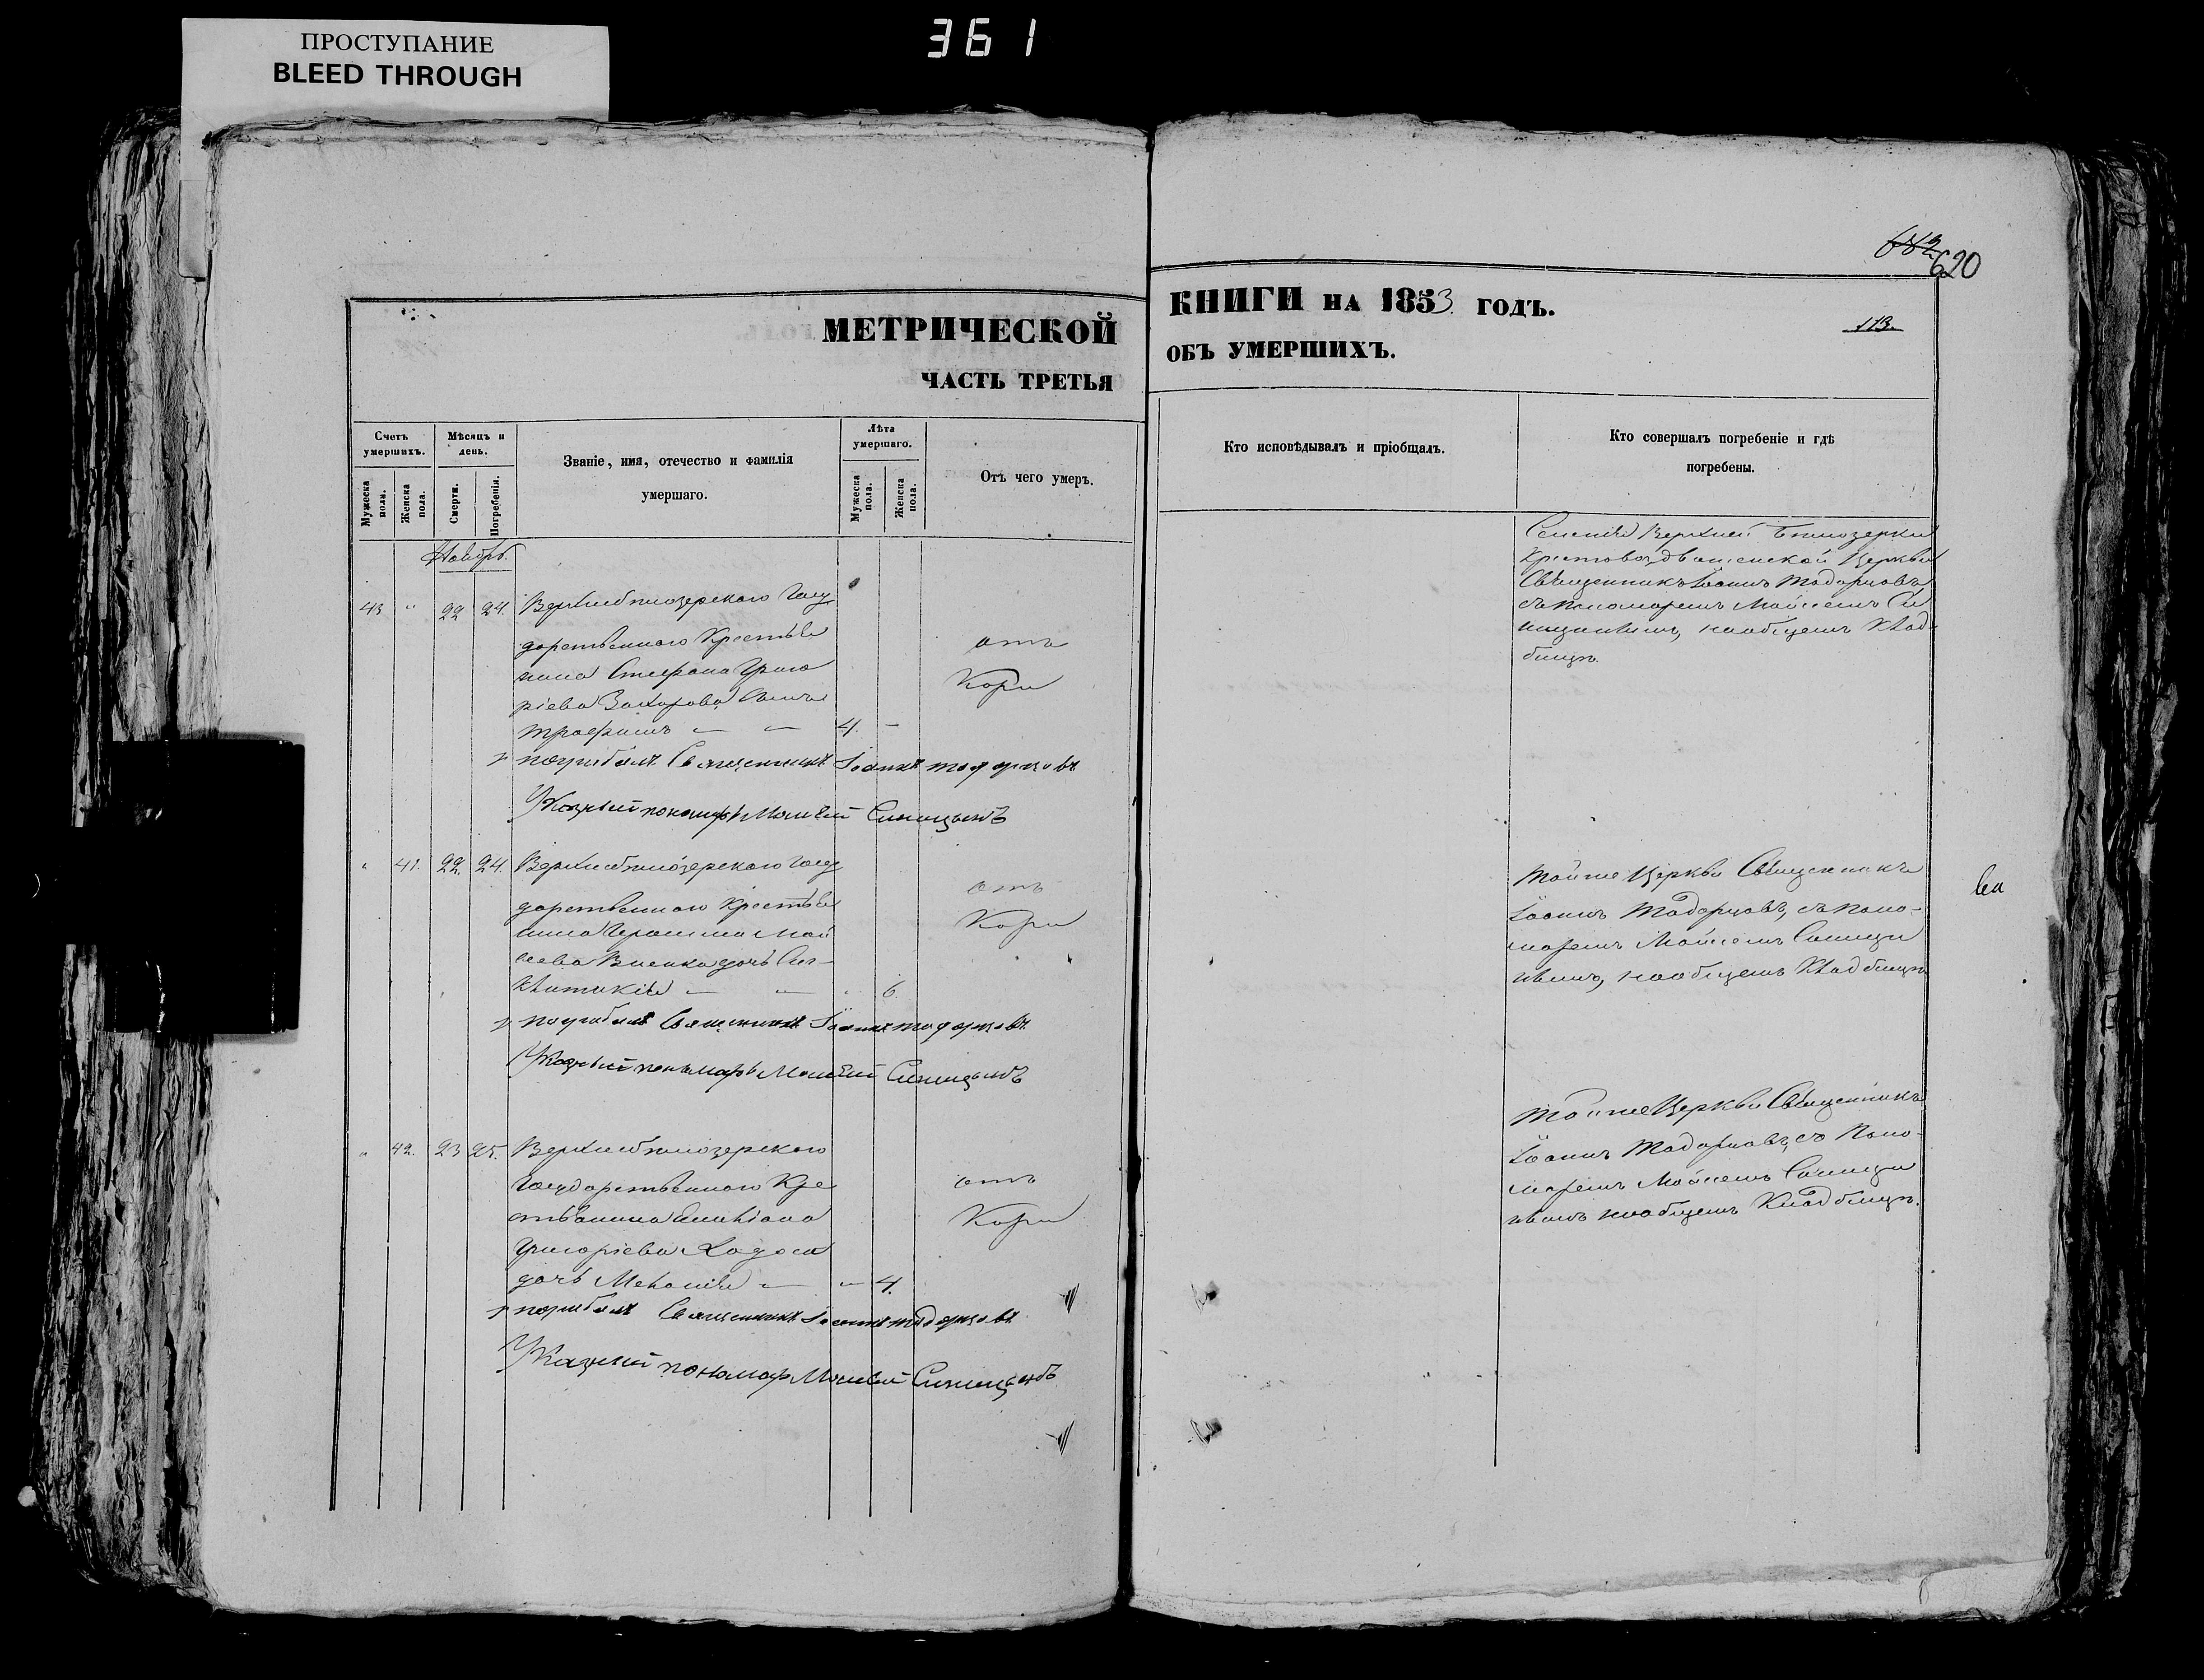 ПРОСТУПАНИЕ
BLEED THROUGH
361
682
620
МЕТРИЧЕСКОЙ
ЧАСТЬ ТРЕТЬЯ
КНИГИ НА 1853 ГОДЪ.
113.
ОБЪ УМЕРШИХЪ.
Счетъ умершихъ.
Мужеска пола.
Женска пола.
Мѣсяцъ и день.
Смерти.
Погребенія.
Званіе, имя, отечество и фамилія
умершаго.
Лѣта умершаго.
Мужеска пола.
Женска пола.
Отъ чего умеръ.
Кто исповѣдывалъ и пріобщалъ.
Кто совершалъ погребеніе и гдѣ
погребены.
Ноябрь
43 " 22 24. Верхнебѣлозерскаго Госу
дарственнаго Крестья
нина Стефана Григо
ріева Захарова сынъ
Трофимъ — — 4. —
отъ
Кори
погребалъ Священникъ Іоаннъ Тодорцовъ
Указный пономарь Моисей Синицынъ
Селенія Верхней Бѣлозерки
Крестовоздвиженской Церкви
Священникъ Іоаннъ Тодорцовъ
съ пономаремъ Моисеемъ Си
ницинымъ, на общемъ Клад
бищѣ.
" 41. 22. 24. Верхнебѣлозерскаго Госу
дарственнаго Крестья
нина Герасима Мои
сеева дочь Син-
клитикія — — 6.
отъ
Кори
погребалъ Священникъ Іоаннъ Тодорцовъ
Указный пономарь Моисей Синицынъ
Той же Церкви Священникъ
Іоаннъ Тодорцовъ, съ поно-
маремъ Моисеемъ Синици
нымъ, на общемъ Кладбищѣ
" 42. 23 25. Верхнебѣлозерскаго
Государственнаго Кре
стьянина
Григоріева Ходоса
дочь Меланія — — 4.
отъ
Кори
погребалъ Священникъ Іоаннъ Тодорцовъ
Указный пономарь Моисей Синицынъ
Той же Церкви Священникъ
Іоаннъ Тодорцовъ, съ Поно-
маремъ Моисеемъ Синици
нымъ на общемъ Кладбищѣ.